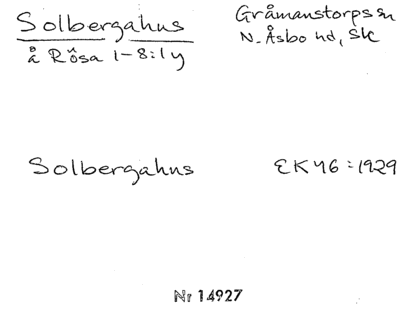 Solbergahus
Gråmanstorps sn
N. Åsbo hd, Sk
å Rösa 1-8:1 y
Solbergahus
EK 46:1929
Nr 14927